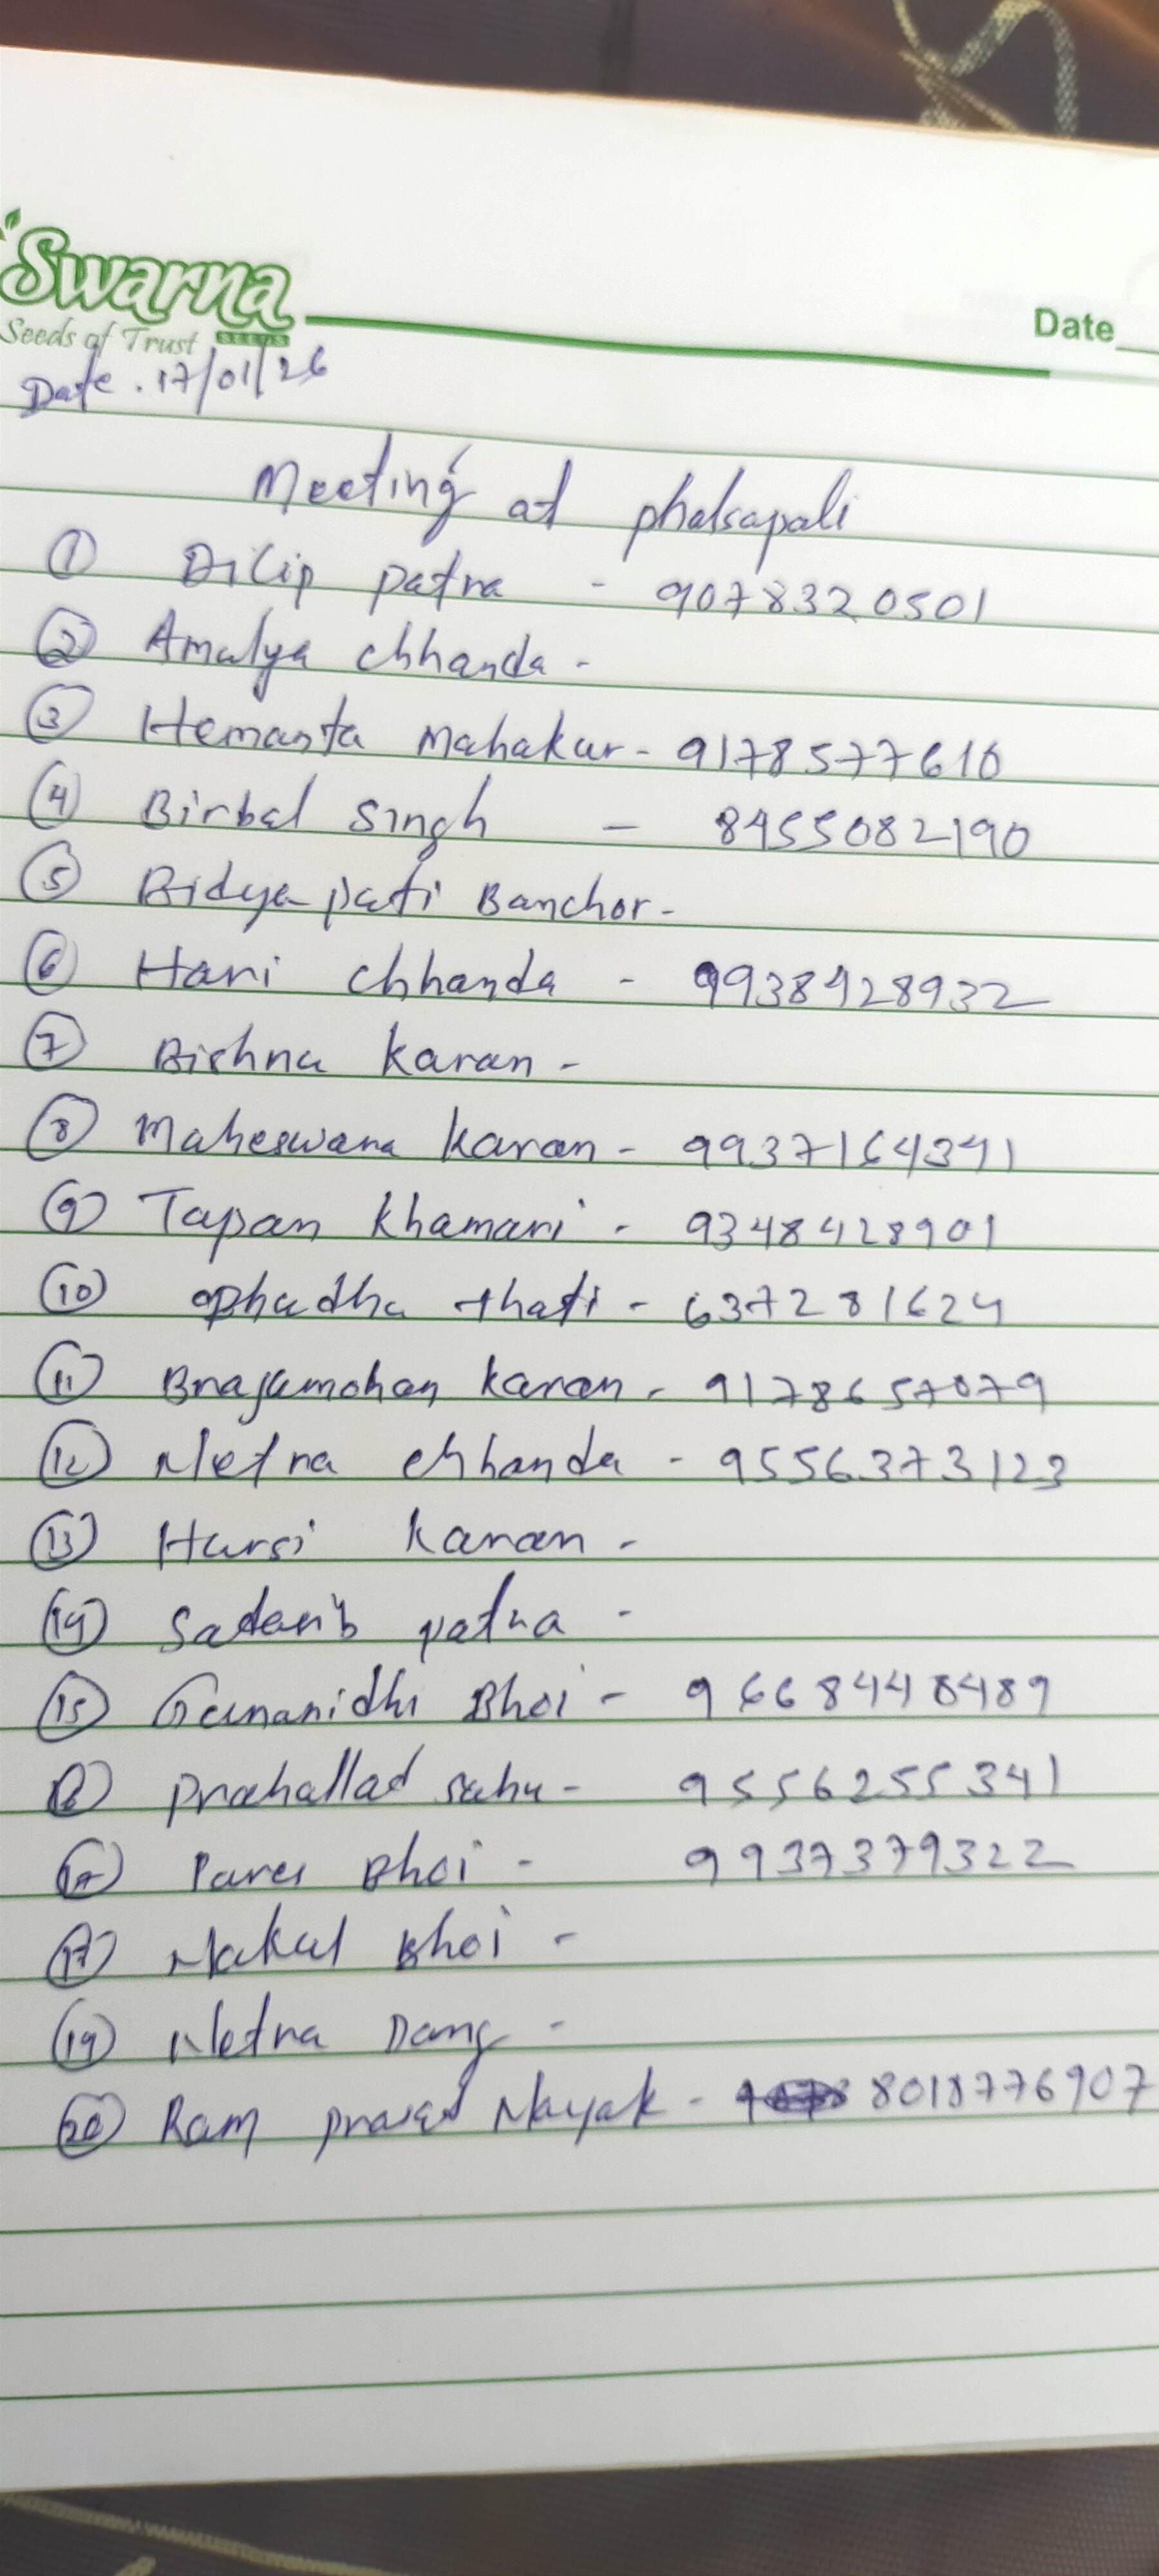 Swarna
Seeds of Trust SEEDS
Date
Date. 17/01/26
Meeting at phalsapali
① Dilip patra - 9078320501
② Amulya chhanda -
③ Hemanta Mahakur - 9178577610
④ Birbal Singh - 8455082190
⑤ Bidya pati Banchor -
⑥ Hari chhanda - 9938428932
⑦ Bishnu karan -
⑧ Maheswara karan - 9937164341
⑨ Tapan khamari - 9348428901
⑩ thati - 637281624
⑪ Brajamohan karan - 9178657079
⑫ Netra chhanda - 9556373123
⑬ Harsi karan -
⑭ patra -
⑮ Gunanidhi Bhoi - 9668448489
⑯ prahallad sahu - 9556255341
⑰ Pares Bhoi - 9937379322
⑰ Nakul Bhoi -
⑲ Netra Dang -
⑳ Ram prasad Nayak - 8018776907